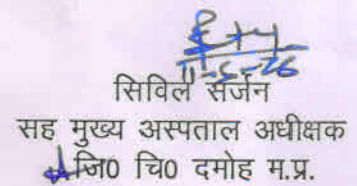 11-5-26
सिविल सर्जन
सह मुख्य अस्पताल अधीक्षक
जि0 चि0 दमोह म.प्र.